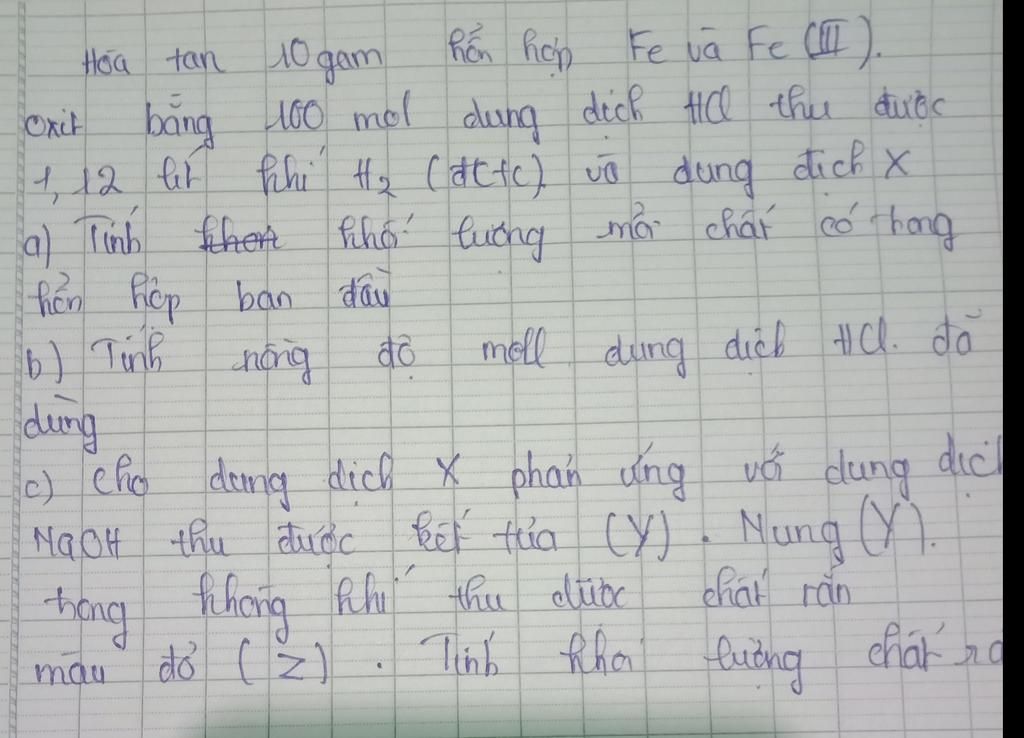 Hóa tan 10 gam hỗn hợp Fe và Fe (III).
oxit bằng 100 mol dung dịch HCl thu được
1,12 lít khí H₂ (đctc) và dung dịch X
a) Tính khối lượng mỗi chất có trong
hỗn hợp ban đầu
b) Tính nồng độ moll dung dịch HCl. đã
dùng
c) Cho dung dịch X phản ứng với dung dịch
NaOH thu được kết tủa (Y). Nung (Y).
trong không khí thu được chất rắn
màu đỏ (Z). Tính khối lượng chất